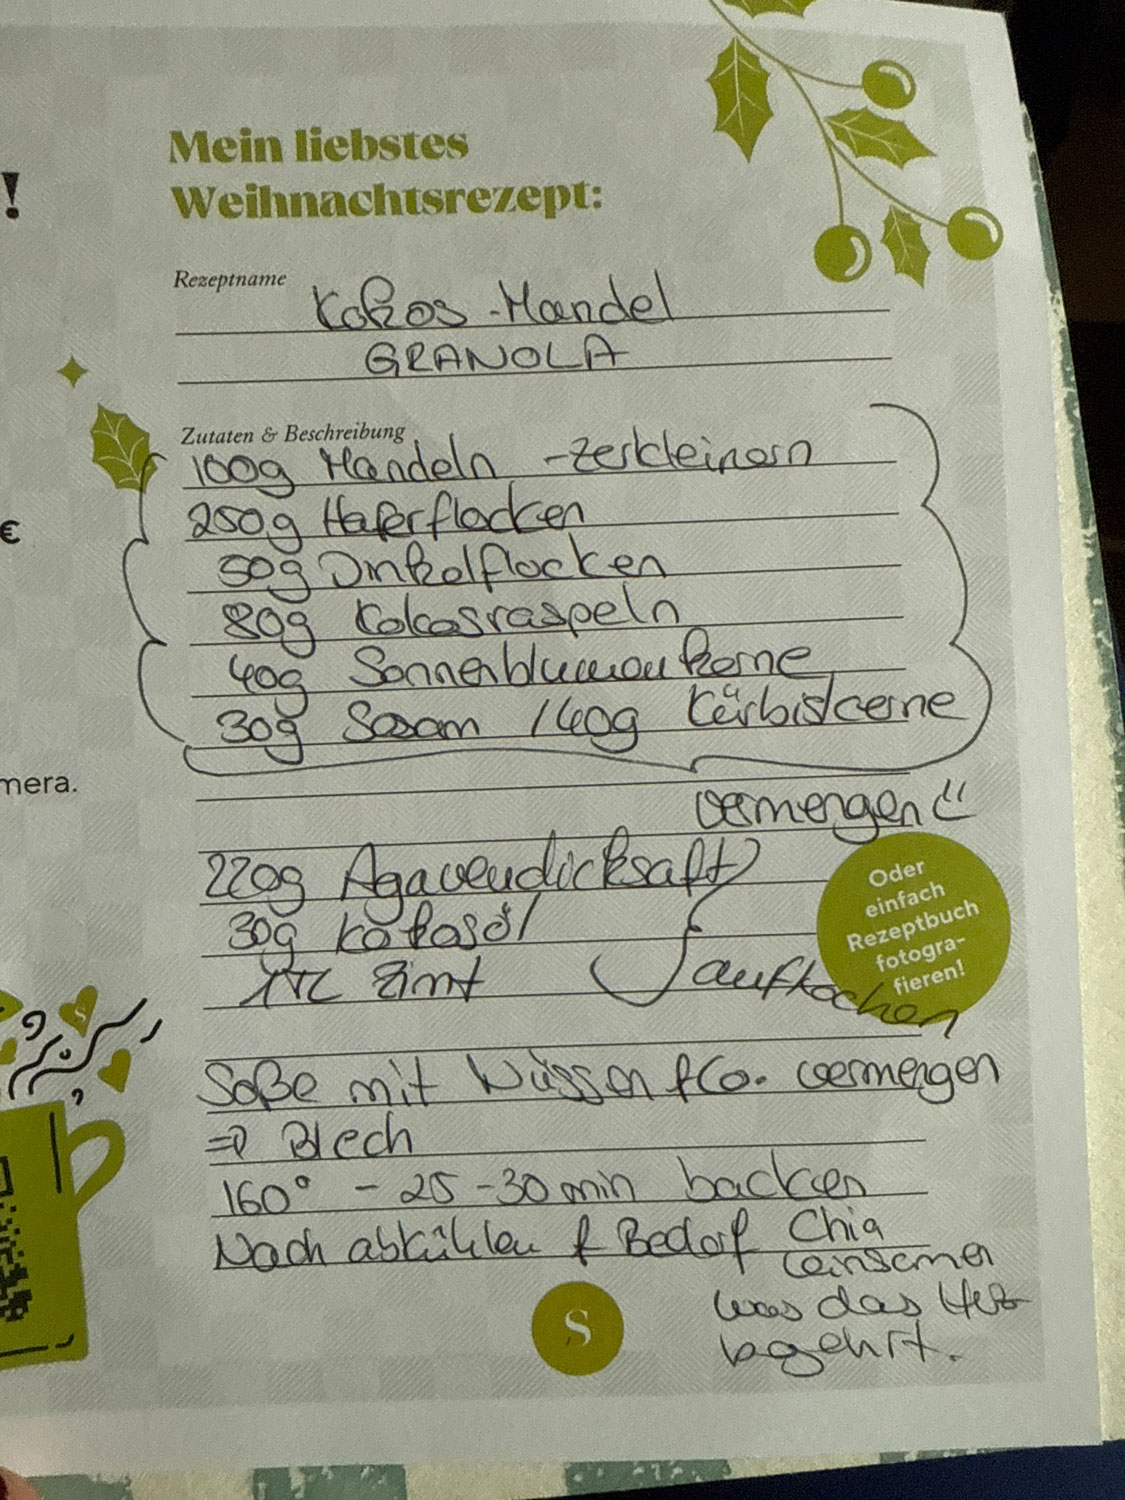 !
€
mera.
Mein liebstes
Weihnachtsrezept:
Rezeptname
Kokos-Mandel
GRANOLA
Zutaten & Beschreibung
100g Mandeln - zerkleinern
250g Haferflocken
50g Dinkelflocken
80g Kokosraspeln
40g Sonnenblumenkerne
30g Sesam / 40g Kürbiskerne
vermengen
220g Agavendicksaft
30g Kokosöl
Zimt
aufkochen
Oder
einfach
Rezeptbuch
fotogra-
fieren!
Soße mit Nüssen & Co. vermengen
=> Blech
160° - 25-30min backen
Nach abkühlen & Bedarf Chia
Leinsamen
was das Herz
begehrt.
S
S